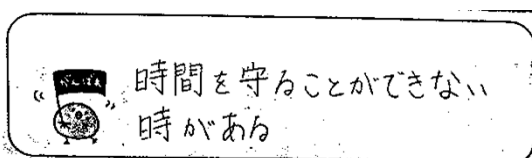 がんばれ
時間を守ることができない
時がある